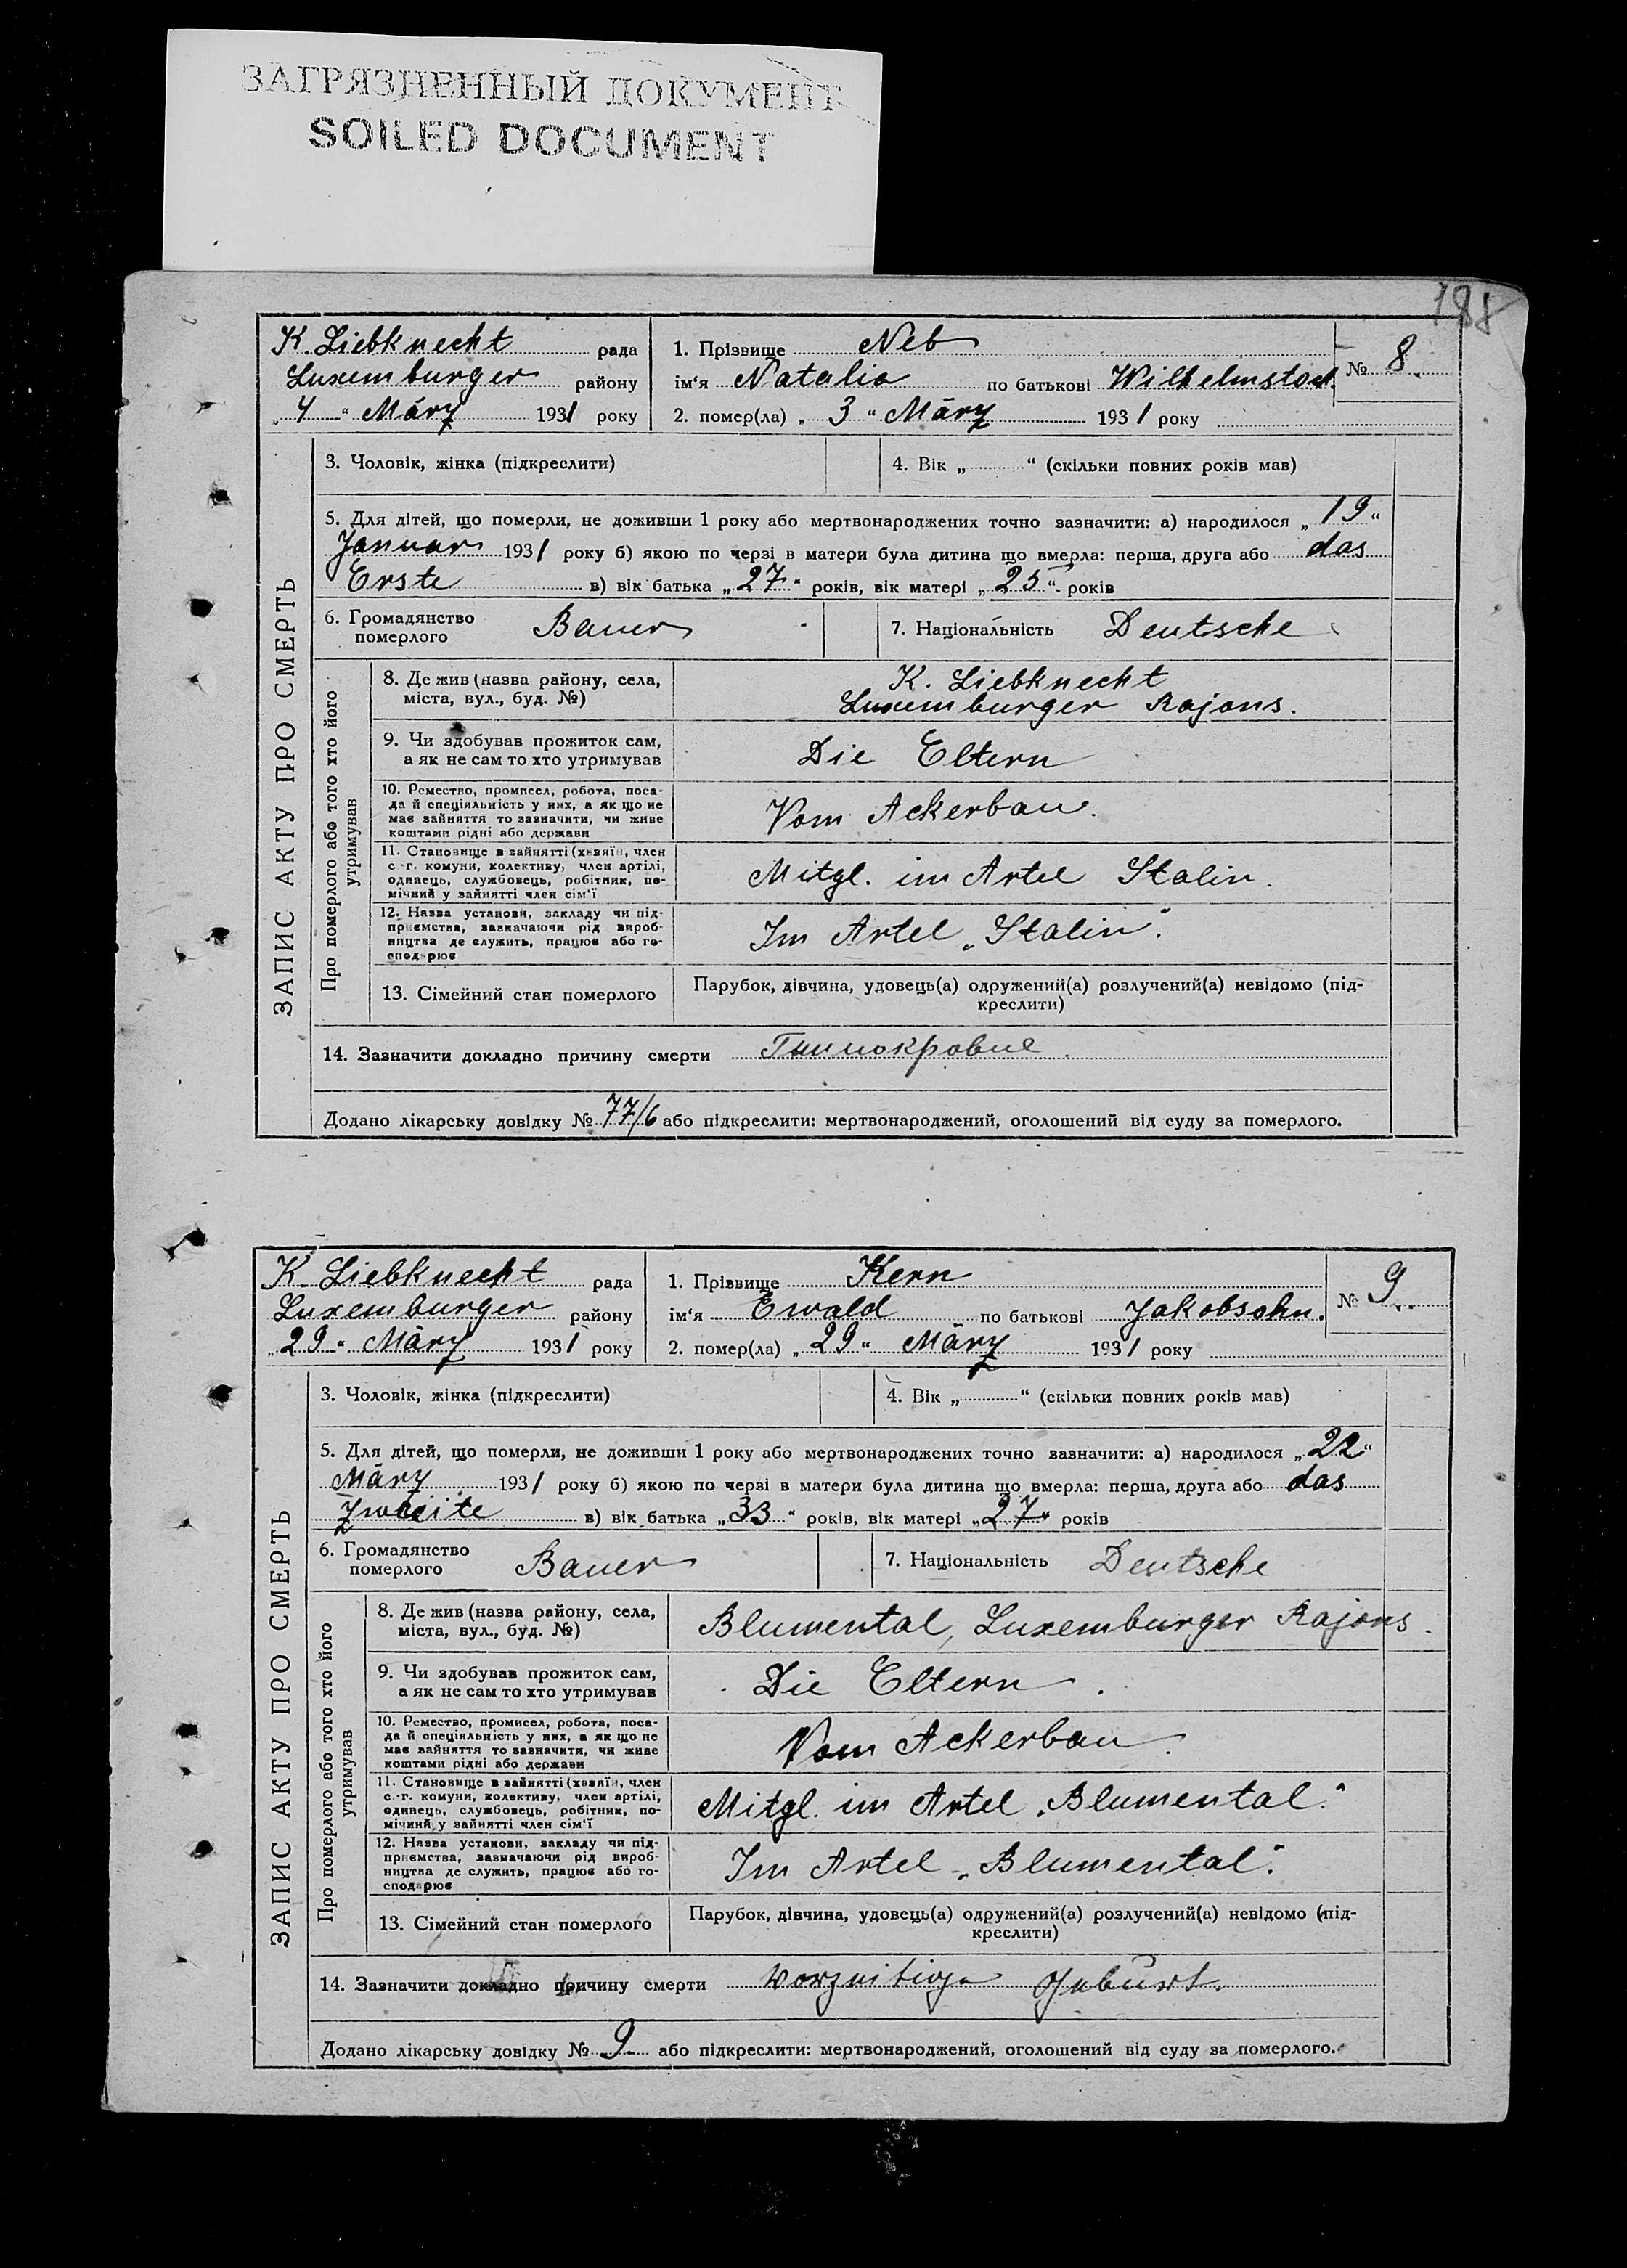 ЗАГРЯЗНЕННЫЙ ДОКУМЕНТ
SOILED DOCUMENT
188
K. Liebknecht рада
Luxemburger району
„4“ März 1931 року
1. Прізвище Neb
ім‘я Natalia по батькові Wilhelmstocht.
2. помер(ла) „3“ März 1931 року
№ 8.
ЗАПИС АКТУ ПРО СМЕРТЬ
3. Чоловік, жінка (підкреслити)
4. Вік „ “ (скільки повних років мав)
5. Для дітей, що померли, не доживши 1 року або мертвонароджених точно зазначити: а) народилося „19“
Januar 1931 року б) якою по черзі в матери була дитина що вмерла: перша, друга або das
Erste в) вік батька „27“ років, вік матері „25“. років
6. Громадянство
померлого Bauer
7. Національність Deutsche
Про померлого або того хто його
утримував
8. Де жив (назва району, села,
міста, вул., буд. №)
K. Liebknecht
Luxemburger Rajons.
9. Чи здобував прожиток сам,
а як не сам то хто утримував
Die Eltern
10. Ремество, промисел, робота, поса-
да й спеціяльність у них, а як що не
має зайняття то зазначити, чи живе
коштами рідні або держави
Vom Ackerbau.
11. Становище в зайнятті (хазяїн, член
с.-г. комуни, колективу, член артілі,
одинець, службовець, робітник, по-
мічний у зайнятті член сім‘ї
Mitgl. im Artel Stalin.
12. Назва установи, закладу чи під-
приємства, зазначаючи рід вироб-
ництва де служить, працює або го-
сподарює
Im Artel „Stalin“.
13. Сімейний стан померлого
Парубок, дівчина, удовець(а) одружений(а) розлучений(а) невідомо (під-
креслити)
14. Зазначити докладно причину смерти
Додано лікарську довідку № 77/6 або підкреслити: мертвонароджений, оголошений від суду за померлого.
K. Liebknecht рада
Luxemburger району
„29“ März 1931 року
1. Прізвище Kern
ім‘я Ewald по батькові Jakobsohn.
2. помер(ла) „29“ März 1931 року
№ 9
ЗАПИС АКТУ ПРО СМЕРТЬ
3. Чоловік, жінка (підкреслити)
4. Вік „ “ (скільки повних років мав)
5. Для дітей, що померли, не доживши 1 року або мертвонароджених точно зазначити: а) народилося „22“
März 1931 року б) якою по черзі в матери була дитина що вмерла: перша, друга або das
Zweite в) вік батька „33“ років, вік матері „27“ років
6. Громадянство
померлого Bauer
7. Національність Deutsche
Про померлого або того хто його
утримував
8. Де жив (назва району, села,
міста, вул., буд. №)
Blumental, Luxemburger Rajons.
9. Чи здобував прожиток сам,
а як не сам то хто утримував
Die Eltern.
10. Ремество, промисел, робота, поса-
да й спеціяльність у них, а як що не
має зайняття то зазначити, чи живе
коштами рідні або держави
Vom Ackerbau.
11. Становище в зайнятті (хазяїн, член
с.-г. комуни, колективу, член артілі,
одинець, службовець, робітник, по-
мічний у зайнятті член сім‘ї
Mitgl. im Artel „Blumental.“
12. Назва установи, закладу чи під-
приємства, зазначаючи рід вироб-
ництва де служить, працює або го-
сподарює
Im Artel „Blumental“.
13. Сімейний стан померлого
Парубок, дівчина, удовець(а) одружений(а) розлучений(а) невідомо (під-
креслити)
14. Зазначити докладно причину смерти vorzeitige Geburt.
Додано лікарську довідку № 9 або підкреслити: мертвонароджений, оголошений від суду за померлого.